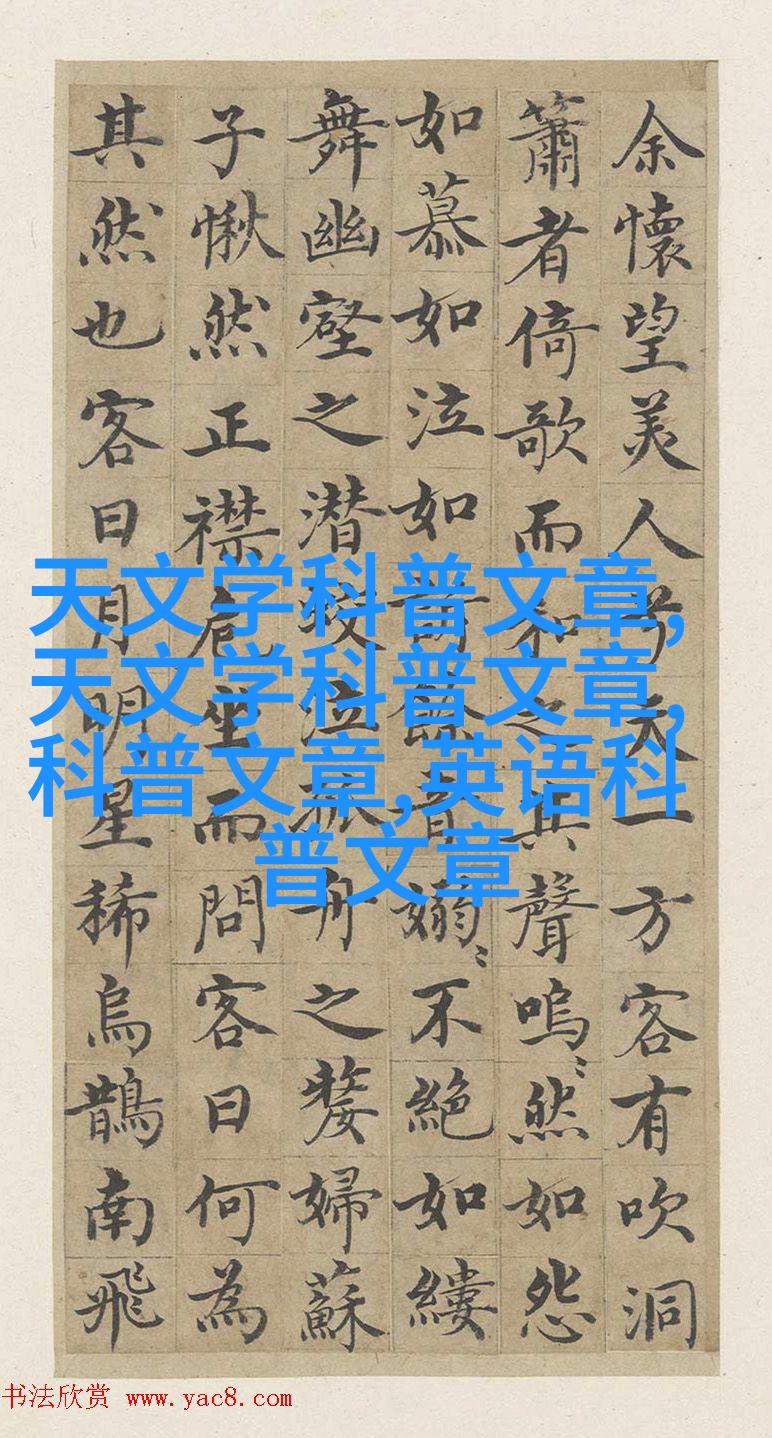 余懷望美人兮天一方客有吹洞
簫者倚歌而和之其聲嗚〻然如怨
如慕如泣如訴餘音嫋〻不絕如縷
舞幽壑之潜蛟泣孤舟之嫠婦蘇
子愀然正襟危坐而問客曰何為
其然也客曰月明星稀烏鵲南飛
天文学科普文章,
天文学科普文章,
科普文章,英语科
普文章
书法欣赏 www.yac8.com